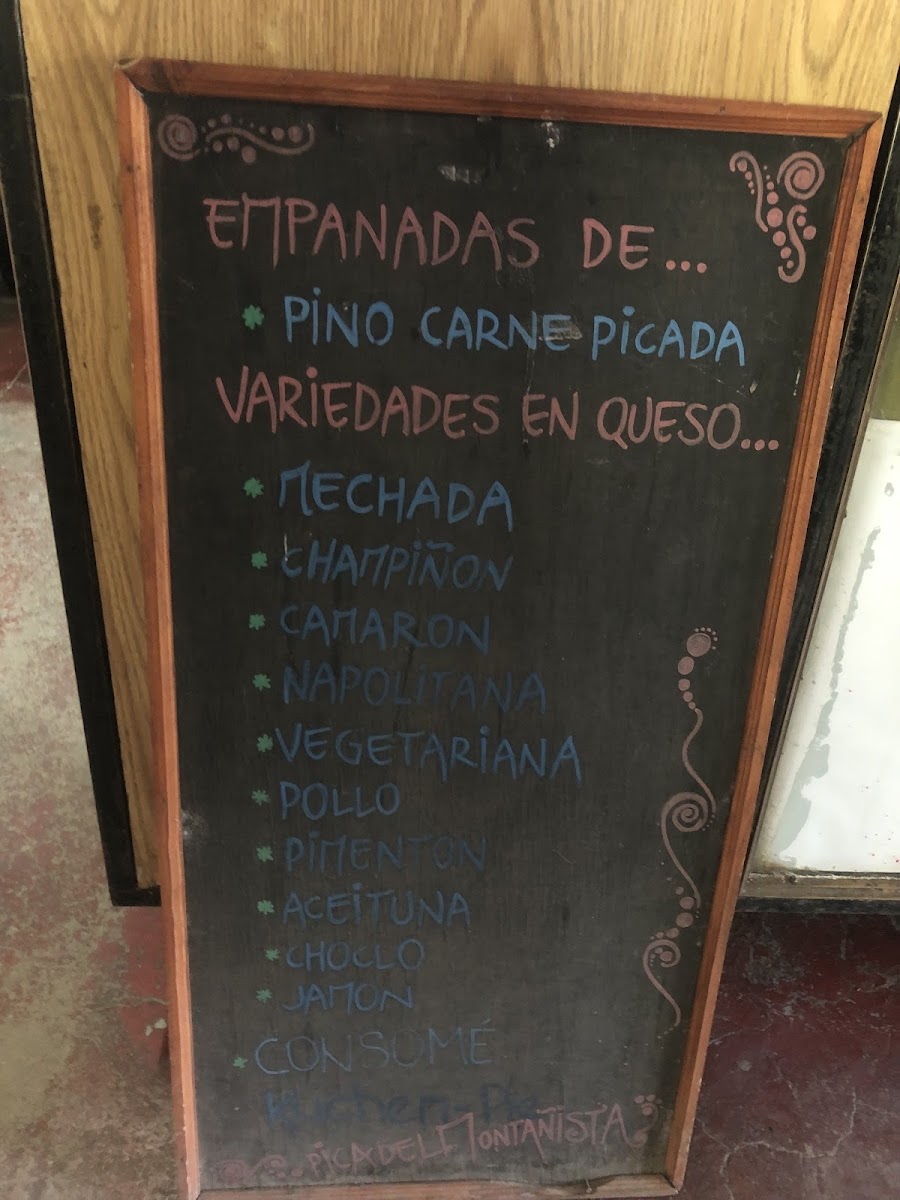 EMPANADAS DE...
PINO CARNE PICADA
VARIEDADES EN QUESO...
MECHADA
CHAMPIÑON
CAMARON
NAPOLITANA
VEGETARIANA
POLLO
PIMENTON
ACEITUNA
CHOCLO
JAMON
CONSOMÉ
Kuchen-Pie
PICA DEL MONTAÑISTA